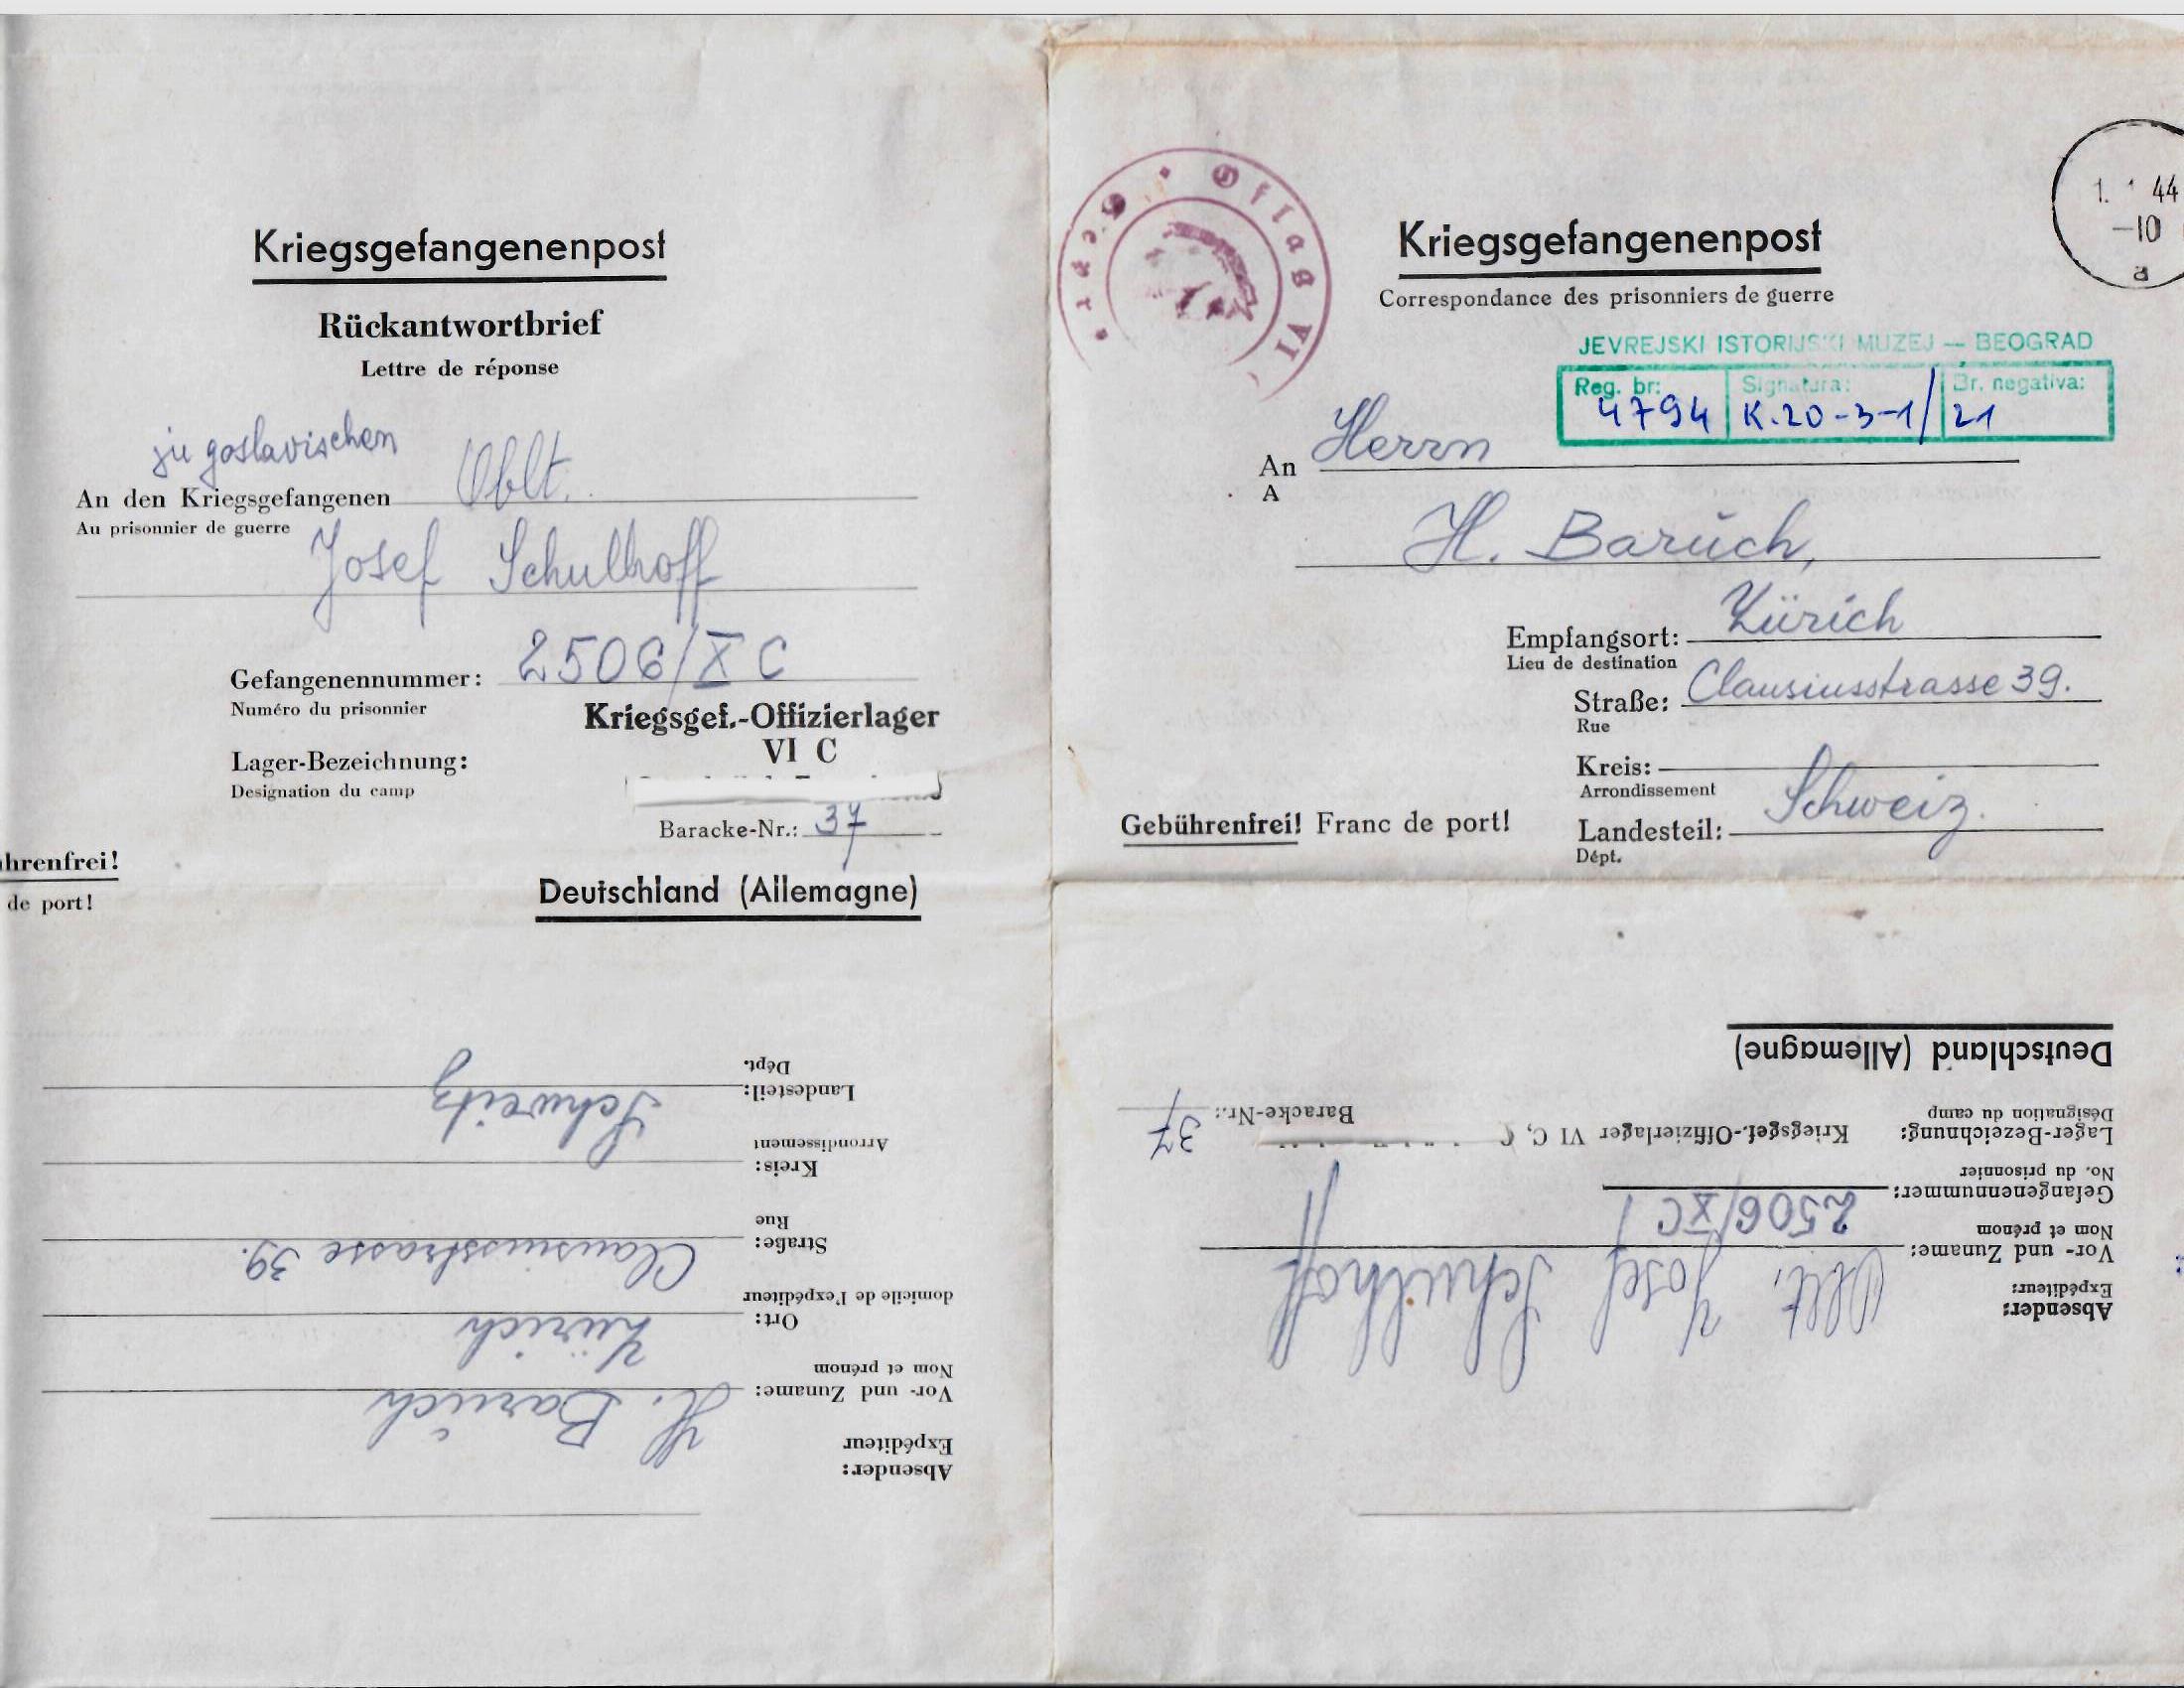 Kriegsgefangenenpost
Rückantwortbrief
Lettre de réponse
jugoslavischen
An den Kriegsgefangenen Oblt.
Au prisonnier de guerre
Josef Schulhoff
Gefangenennummer: 2506/X C
Numéro du prisonnier
Kriegsgef.-Offizierlager
VI C
Lager-Bezeichnung:
Designation du camp
Baracke-Nr.: 37
hrenfrei!
de port!
Deutschland (Allemagne)
Landesteil: Schweitz
Dépt.
Kreis:
Arrondissement
Straße: Clausiusstrasse 39.
Rue
Ort: Zürich
domicile de l'expéditeur
Vor- und Zuname: H. Baruch
Nom et prénom
Absender:
Expéditeur
Oflag VI
Geprüft
1. 1 44
-10
a
Kriegsgefangenenpost
Correspondance des prisonniers de guerre
JEVREJSKI ISTORIJSKI MUZEJ — BEOGRAD
Reg. br: Signatura: Br. negativa:
4794 K.20-3-1/21
An Herrn
A
H. Baruch,
Empfangsort: Zürich
Lieu de destination
Straße: Clausiusstrasse 39.
Rue
Kreis:
Arrondissement
Gebührenfrei! Franc de port!
Landesteil: Schweiz.
Dépt.
Absender:
Expéditeur:
Vor- und Zuname: Oblt. Josef Schulhoff
Nom et prénom
Gefangenennummer: 2506/XC
No. du prisonnier
Lager-Bezeichnung: Kriegsgef.-Offizierlager VI C,
Désignation du camp
Baracke-Nr.: 37
Deutschland (Allemagne)